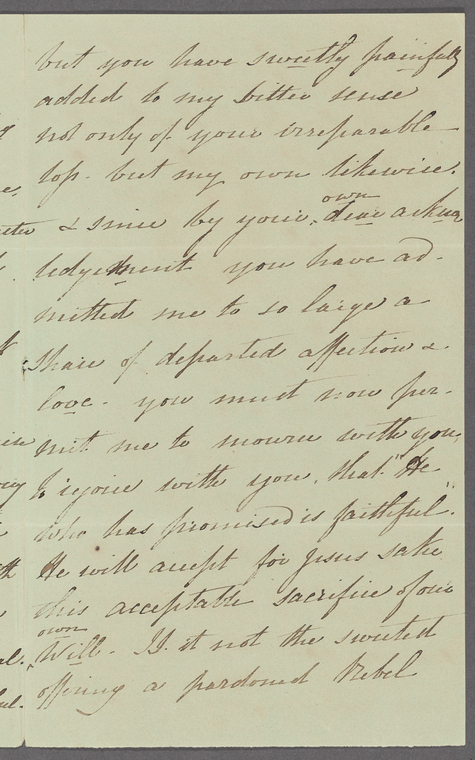 but you have sweetly painfully
added to my bitter sense
not only of your irreparable
loss - but my own likewise.
& since by your own dear acknow
ledgement you have ad-
mitted me to so large a
share of departed affection &
love - you must now per-
mit me to mourn with you,
& rejoice with you, that "He
who has promised is faithful".
He will accept for Jesus sake
this acceptable sacrifice of our
own Will - Is it not the sweetest
offering a pardoned Rebel